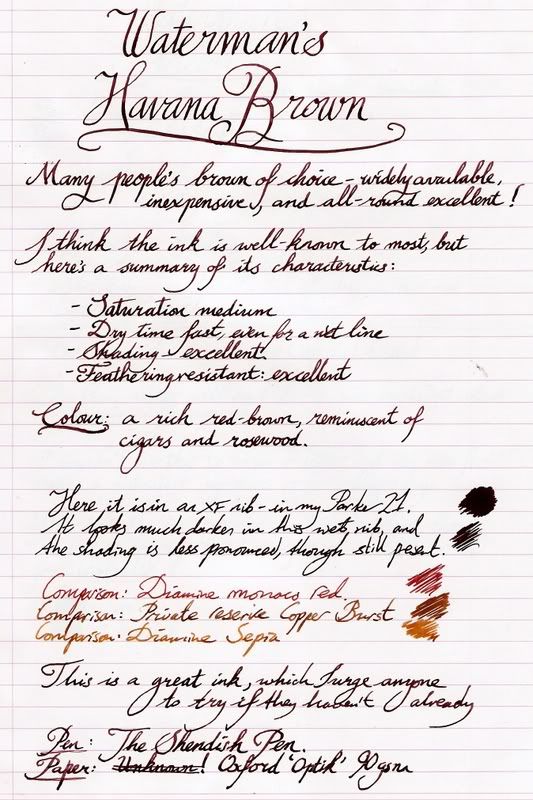 Waterman's
Havana Brown
Many people's brown of choice – widely available,
inexpensive, and all-round excellent!
I think the ink is well-known to most, but
here's a summary of its characteristics:
- Saturation medium
- Dry time fast, even for a wet line
- Shading - excellent.
- Feathering resistant: excellent
Colour: a rich red-brown, reminiscent of
cigars and rosewood.
Here it is in an XF nib - in my Parker 21.
It looks much darker in this wet nib, and
the shading is less pronounced, though still present.
Comparison: Diamine monaco red.
Comparison: Private reserve Copper Burst
Comparison: Diamine Sepia
This is a great ink, which I urge anyone
to try if they haven't already
Pen: The Shendish Pen.
Paper: Unknown! Oxford 'Optik' 90gsm